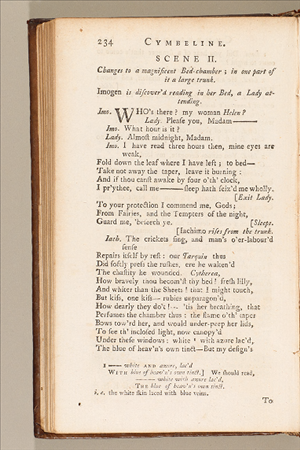 234 CYMBELINE.
SCENE II.
Changes to a magnificent Bed-chamber; in one part of
it a large trunk.
Imogen is discover'd reading in her Bed, a Lady at-
tending.
Imo. WHO's there? my woman Helen?
Lady. Please you, Madam———
Imo. What hour is it?
Lady. Almost midnight, Madam.
Imo. I have read three hours then, mine eyes are
weak,
Fold down the leaf where I have left; to bed—
Take not away the taper, leave it burning:
And if thou canst awake by four o'th' clock,
I pr'ythee, call me——sleep hath seiz'd me wholly.
[Exit Lady.
To your protection I commend me, Gods;
From Fairies, and the Tempters of the night,
Guard me, 'beseech ye. [Sleeps.
[Iachimo rises from the trunk.
Iach. The crickets sing, and man's o'er-labour'd
sense
Repairs itself by rest: our Tarquin thus
Did softly press the rushes, ere he waken'd
The chastity he wounded. Cytherea,
How bravely thou becom'st thy bed! fresh lilly,
And whiter than the Sheets! that I might touch,
But kiss, one kiss— rubies unparagon'd,
How dearly they do't!— 'tis her breathing, that
Perfumes the chamber thus: the flame o'th' taper
Bows tow'rd her, and would under-peep her lids,
To see th' inclosed light, now canopy'd
Under these windows: white ¹ with azure lac'd,
The blue of heav'n's own tinct—But my design's
1 —— white AND azure, lac'd
WITH blue of heav'n's own tinct.] We should read,
——— white with azure lac'd,
THE blue of heav'n's own tinct.
i. e. the white skin laced with blue veins.
To